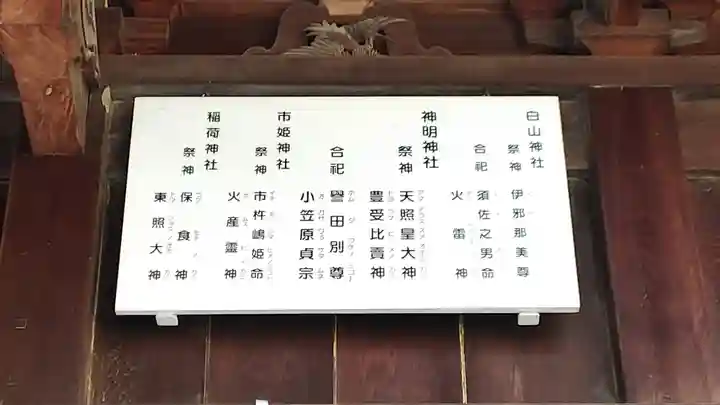 白山神社
祭神 伊邪那美尊
合祀 須佐之男命
火雷神
神明神社
祭神 天照皇大神
豊受比賣神
合祀 譽田別尊
小笠原貞宗
市姫神社
祭神 市杵嶋姫命
火産霊神
稲荷神社
祭神 保食神
東照大神